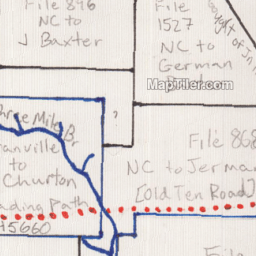 File 896
NC to
J Baxter
File
1527
NC to
German
MapTiler.com
Three Mile Br
anville
to
Churton
ading Path
45660
?
File 868
NC to Jerman
[Old Ten Road]
File